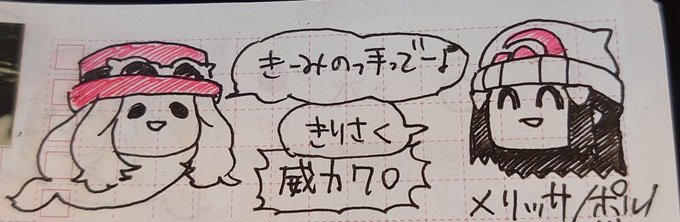 きーみのっ手っでー♪
きりさく
威力70
メリッサ/ポルノ